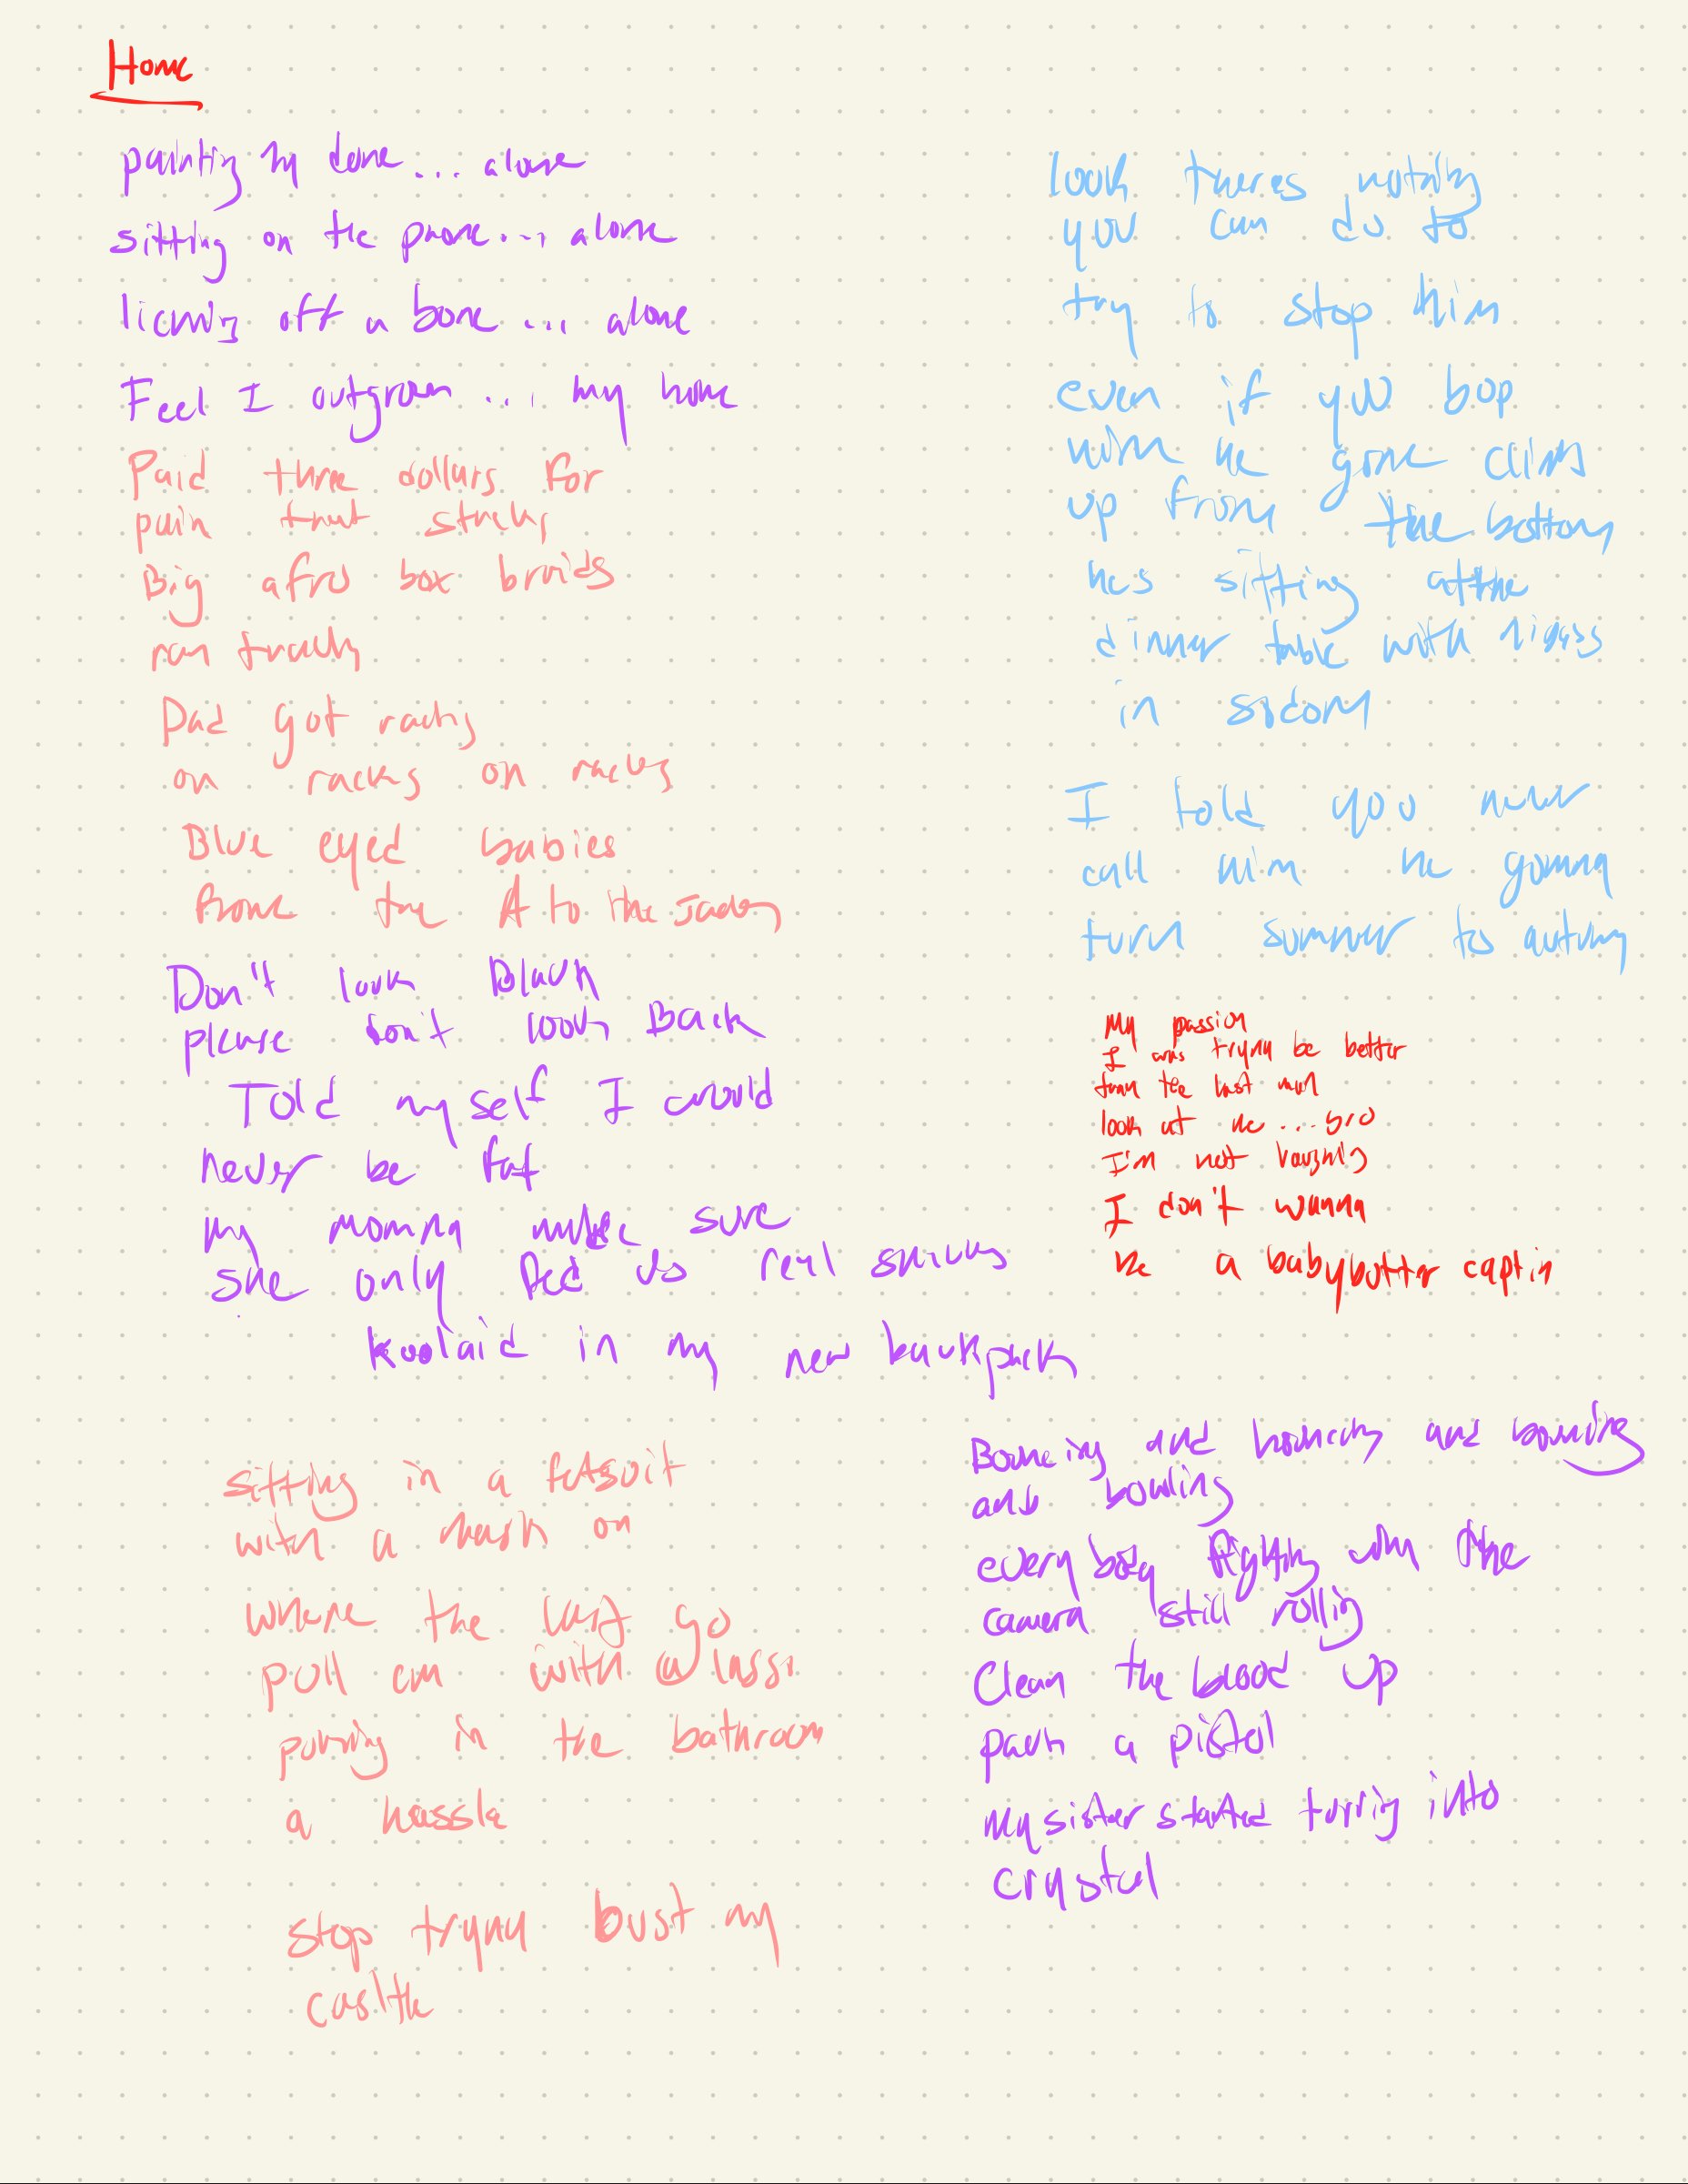 Home
painting my dome... alone
sitting on the phone... alone
licking off a bone... alone
Feel I outgrown... my home
Paid three dollars for
pain that
Big afro box braids
ran track
Dad got racks
on racks on racks
Blue eyed babies
from the A to the
Don't look Black
please don't look Back
Told myself I would
never be fat
my momma make sure
she only fed us real snacks
koolaid in my new backpack
sitting in a fatsuit
with a mask on
where the last go
pull em with a lasso
in the bathroom
a hassle
stop tryna bust my
casltle
look theres nothing
you can do to
try to stop him
even if you bop
him he gone climb
up from the bottom
hes sitting at the
dinner table with niggas
in sodom
I told you never
call him he gonna
turn summer to autumn
My passion
I was tryna be better
than the last man
look at me... bro
I'm not laughing
I don't wanna
be a babybutter captin
Bouncing and bouncing and bouncing
and bowling
everybody fighting when the
camera still rolling
Clean the blood up
pack a pistol
my sister started turning into
crystal